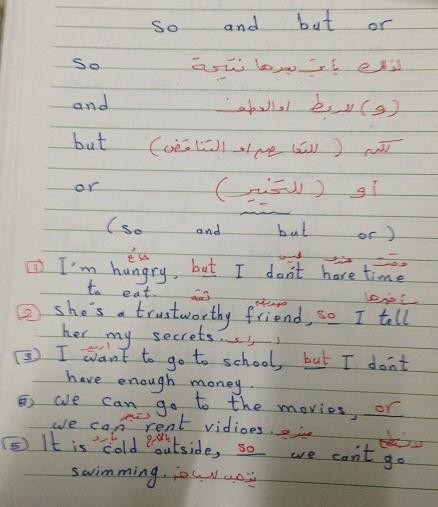 so and but or
so لذلك يأتي بعدها نتيجة
and (و) للربط او العطف
but لكن (للتعا او التناقض)
or أو (للتخيير)
(so and but or)
جائع عندي وقت
[1] I'm hungry, but I don't have time
to eat. ثقة صديقة سأخبرها
[2] she's a trustworthy friend, so I tell
her my secrets. اسراري
[3] I want to go to school, but I don't
اريد
have enough money.
[4] we can go to the movies, or
we can rent vidioes.
بارد بالخارج
[5] It is cold outside, so we can't go
swimming.